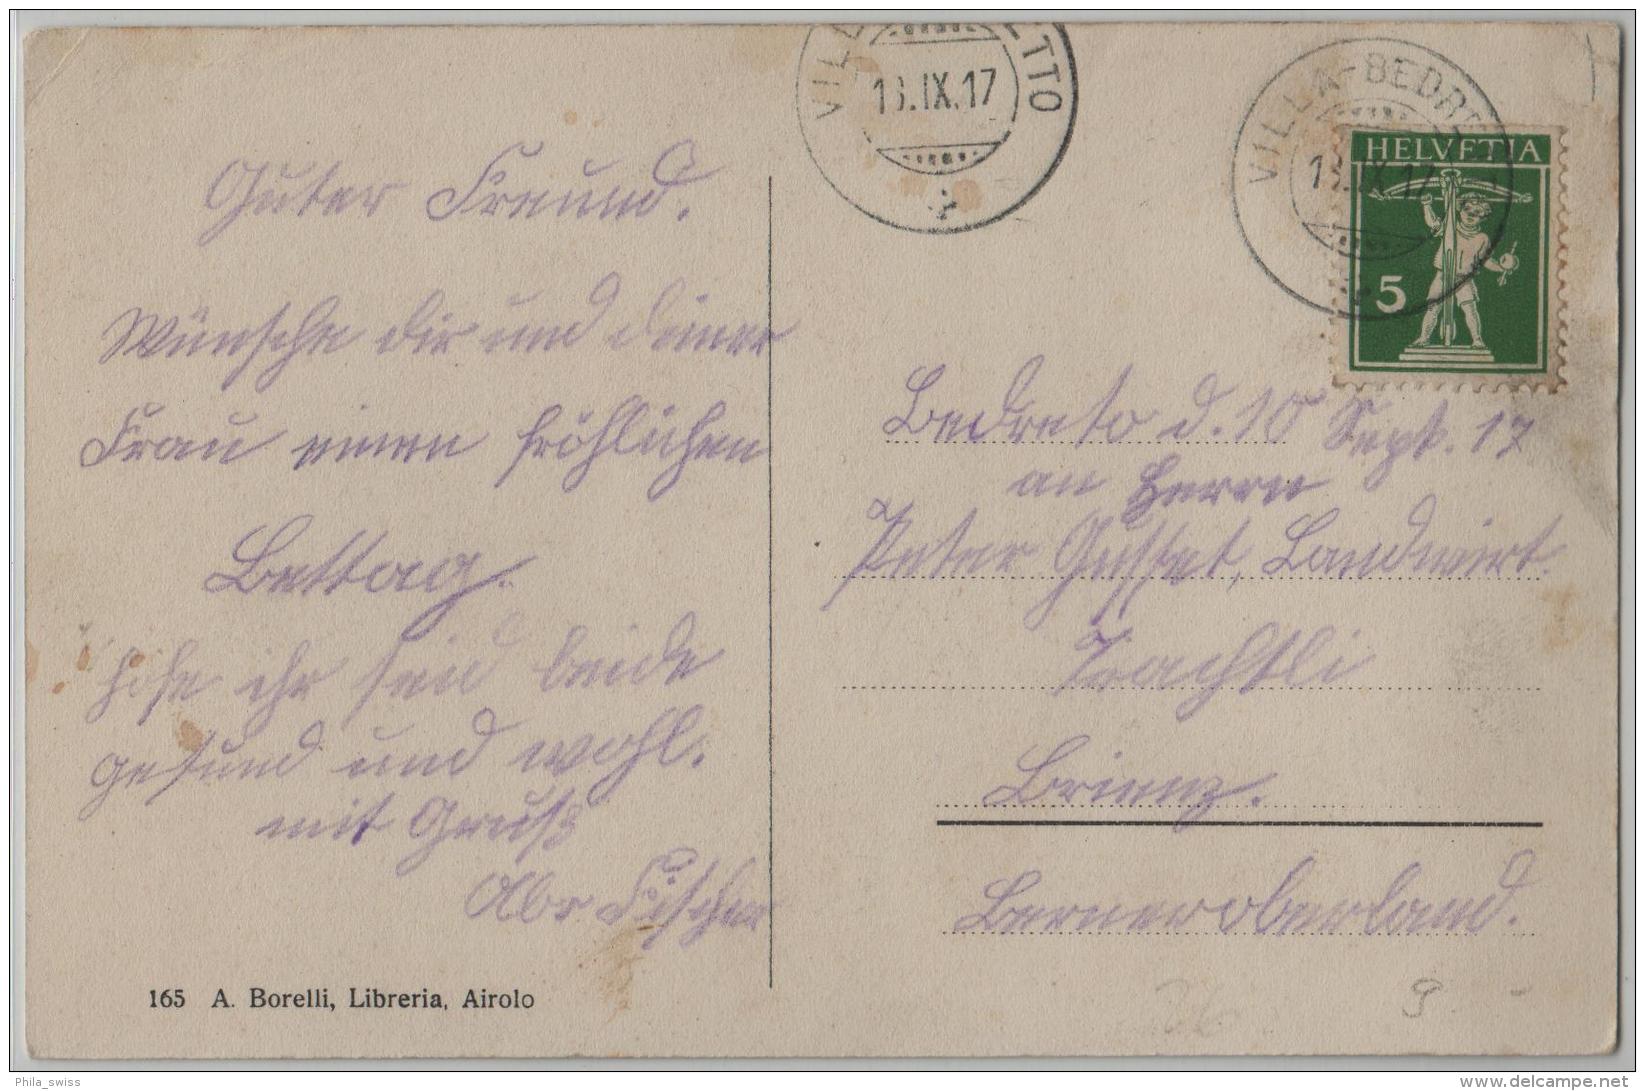 Guter Freund.
Wünsche dir und deiner
Frau einen fröhlichen
Bettag.
hofe ihr seid beide
gesund und wohl.
mit Gruß
Abr Fischer
165 A. Borelli, Libreria, Airolo
VILL TTO
13.IX.17
VILLA-BEDR
13.IX.17
HELVETIA
5
Bedreto d. 10 Sept. 17
an Herrn
Peter Gusset, Landwirt.
Trachtli
Brienz.
Berneroberland.
Phila_swiss
www.delcampe.net